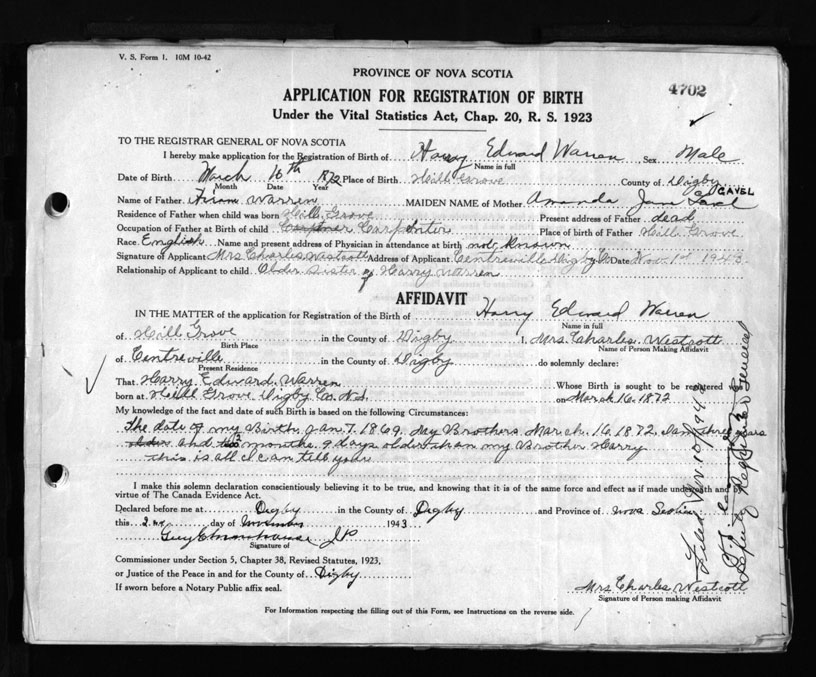 V. S. Form 1. 10M 10-42
PROVINCE OF NOVA SCOTIA
4702
APPLICATION FOR REGISTRATION OF BIRTH
Under the Vital Statistics Act, Chap. 20, R. S. 1923
TO THE REGISTRAR GENERAL OF NOVA SCOTIA
I hereby make application for the Registration of Birth of Harry Edward Warren Sex Male
Name in full
Date of Birth March 16th 1872 Place of Birth Hill Grove County of Digby
Month Date Year
GAVEL
Name of Father Hiram Warren MAIDEN NAME of Mother Amanda Jane
Residence of Father when child was born Hill Grove Present address of Father dead
Occupation of Father at Birth of child Carpenter Place of birth of Father Hill Grove
Race English Name and present address of Physician in attendance at birth not Known
Signature of Applicant Mrs Charles Westcott Address of Applicant Centreville Digby Co Date Nov. 1st 1943
Relationship of Applicant to child Older Sister of Harry Warren
AFFIDAVIT
IN THE MATTER of the application for Registration of the Birth of Harry Edward Warren
Name in full
of Hill Grove in the County of Digby I, Mrs. Charles Westcott
Birth Place Name of Person Making Affidavit
of Centreville in the County of Digby do solemnly declare:
Present Residence
That Harry Edward Warren Whose Birth is sought to be registered was
born at Hill Grove Digby Co. N.S. on March 16. 1872
My knowledge of the fact and date of such Birth is based on the following Circumstances:
The date of my Birth Jan. 7. 1869. My Brothers March. 16. 1872. I am three years
older and 2 months 9 days older than my Brother Harry
this is all I can tell you
I make this solemn declaration conscientiously believing it to be true, and knowing that it is of the same force and effect as if made under oath and by
virtue of The Canada Evidence Act.
Declared before me at Digby in the County of Digby and Province of Nova Scotia
this 2nd day of November 1943
JP
Signature of
Commissioner under Section 5, Chapter 38, Revised Statutes, 1923,
or Justice of the Peace in and for the County of Digby
If sworn before a Notary Public affix seal.
Mrs Charles Westcott
Signature of Person making Affidavit
For Information respecting the filling out of this Form, see Instructions on the reverse side.
Filed Nov. 10/1943
Deputy Registrar General